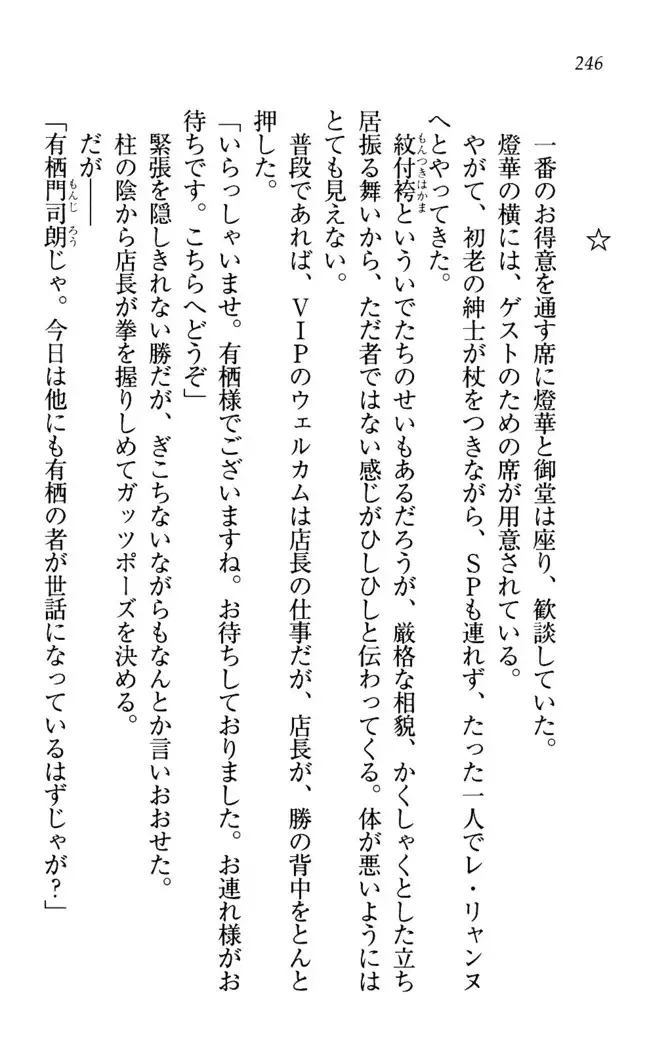 246
☆
一番のお得意を通す席に燈華と御堂は座り、歓談していた。
燈華の横には、ゲストのための席が用意されている。
やがて、初老の紳士が杖をつきながら、SPも連れず、たった一人でレ・リャンヌ
へとやってきた。
紋付袴といういでたちのせいもあるだろうが、厳格な相貌、かくしゃくとした立ち
居振る舞いから、ただ者ではない感じがひしひしと伝わってくる。体が悪いようには
とても見えない。
普段であれば、VIPのウェルカムは店長の仕事だが、店長が、勝の背中をとんと
押した。
「いらっしゃいませ。有栖様でございますね。お待ちしておりました。お連れ様がお
待ちです。こちらへどうぞ」
緊張を隠しきれない勝だが、ぎこちないながらもなんとか言いおおせた。
柱の陰から店長が拳を握りしめてガッツポーズを決める。
だが――
「有栖門司朗じゃ。今日は他にも有栖の者が世話になっているはずじゃが？」